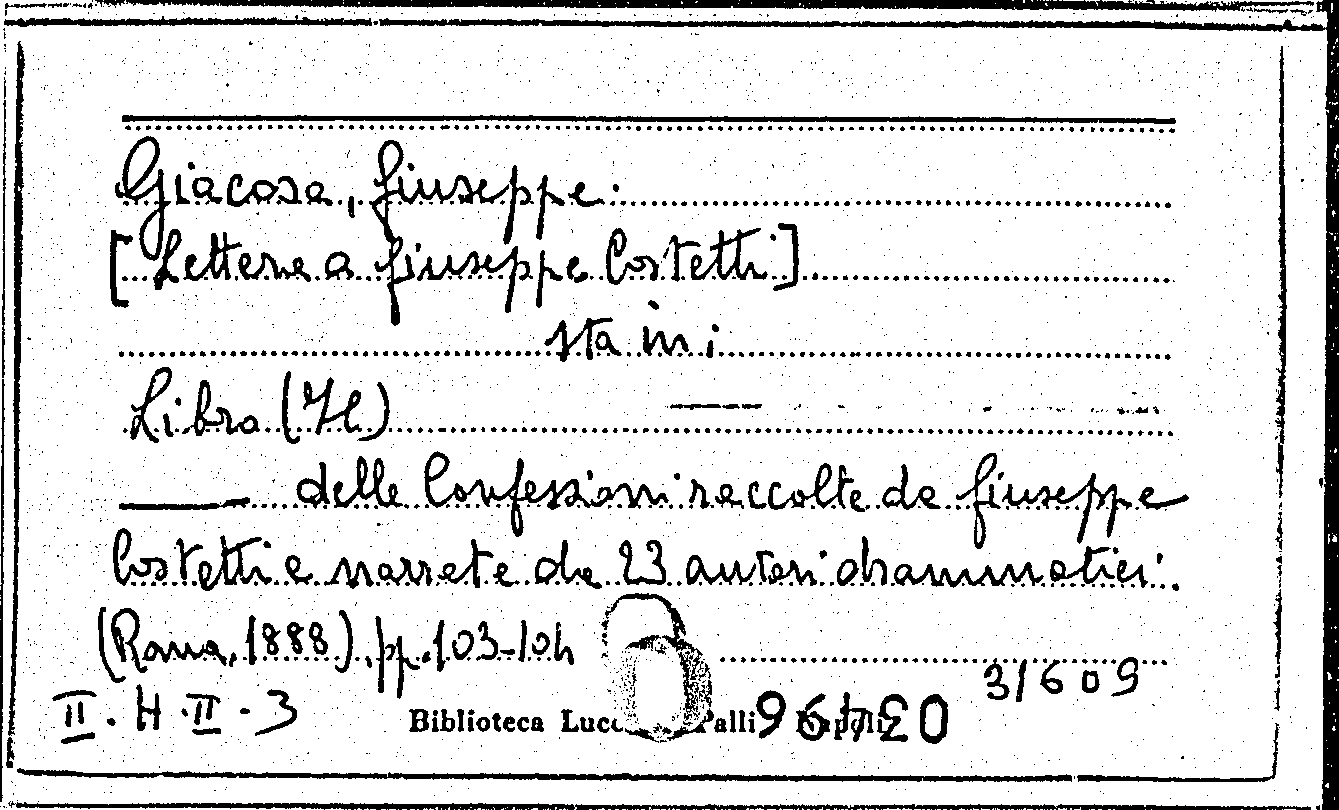 Giacosa, Giuseppe.
[Lettera a Giuseppe Costetti]
sta in:
Libro (Il)
delle Confessioni raccolte da Giuseppe
Costetti e narrate da 23 autori drammatici.
(Roma, 1888). pp. 103-104
31609
II. H. II. 3
Biblioteca Palli